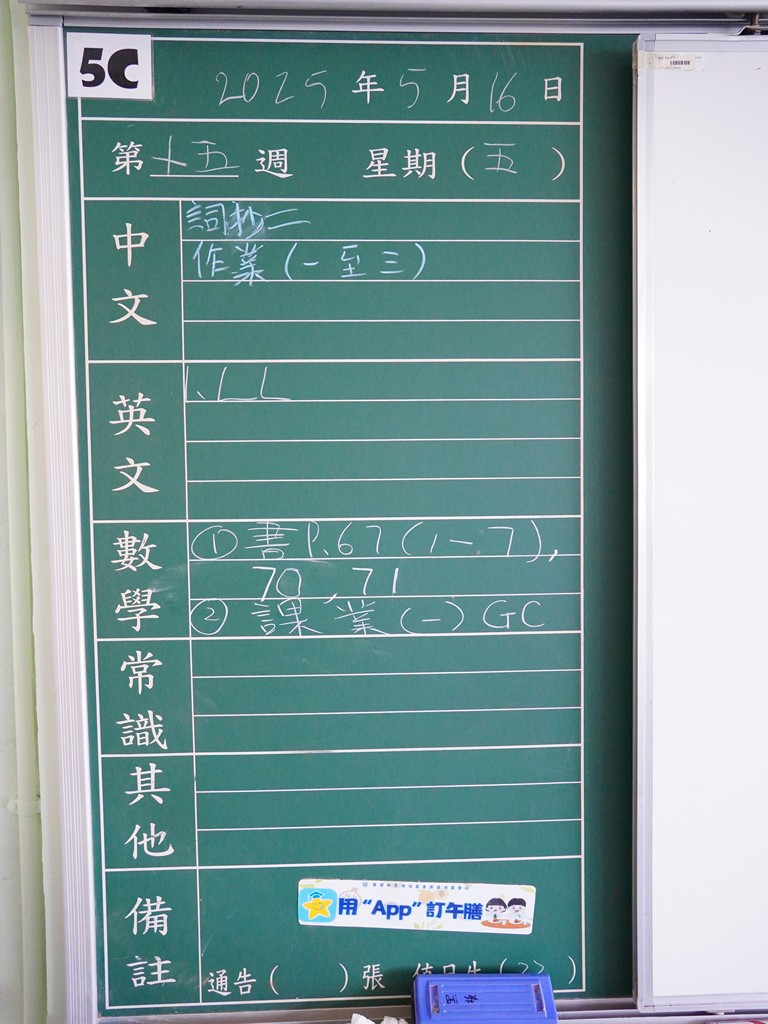 5C
2025年5月16日
第十五週 星期(五)
中文
詞抄二
作業(一至三)
英文
1. LL
數學
① 書P.67(1-7),
70, 71
② 課業(一) GC
常識
其他
備註
用“App”訂午膳
通告( )張